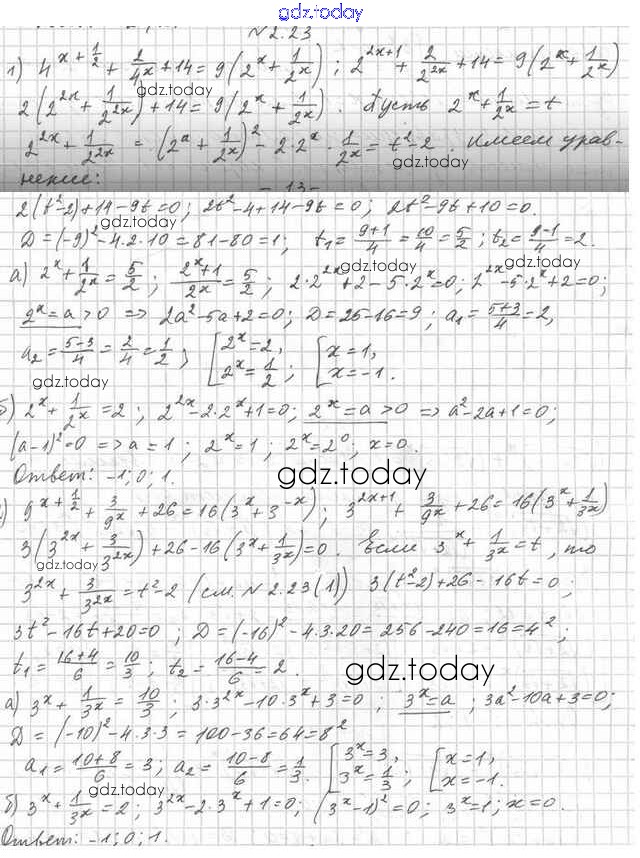 gdz.today
N 2.23
1) 4^{x+1/2} + 2/4^x + 14 = 9(2^x + 1/2^x) ; 2^{2x+1} + 2/2^{2x} + 14 = 9(2^x + 1/2^x)
2(2^{2x} + 1/2^{2x}) + 14 = 9(2^x + 1/2^x) . Пусть 2^x + 1/2^x = t
2^{2x} + 1/2^{2x} = (2^x + 1/2^x)^2 - 2·2^x · 1/2^x = t^2 - 2 . Имеем урав-
gdz.today
нение:
- 13 -
2(t^2-2)+14-9t=0; 2t^2-4+14-9t=0; 2t^2-9t+10=0.
gdz.today
D=(-9)^2-4·2·10=81-80=1; t1=(9+1)/4=10/4=5/2; t2=(9-1)/4=2.
gdz.today gdz.today
а) 2^x+1/2^x=5/2; (2^{2x}+1)/2^x=5/2; 2·2^{2x}+2-5·2^x=0; 2·2^{2x}-5·2^x+2=0;
2^x=a>0 => 2a^2-5a+2=0; D=25-16=9; a1=(5+3)/4=2,
a2=(5-3)/4=2/4=1/2; [2^x=2, 2^x=1/2; [x=1, x=-1.
gdz.today
б) 2^x+1/2^x=2; 2^{2x}-2·2^x+1=0; 2^x=a>0 => a^2-2a+1=0;
(a-1)^2=0 => a=1; 2^x=1; 2^x=2^0; x=0.
Ответ: -1; 0; 1.
gdz.today
) 9^{x+1/2} + 3/9^x + 26 = 16(3^x+3^{-x}); 3^{2x+1} + 3/9^x + 26 = 16(3^x+1/3^x)
3(3^{2x}+3/3^{2x})+26-16(3^x+1/3^x)=0. Если 3^x+1/3^x=t, то
gdz.today
3^{2x}+3/3^{2x}=t^2-2 (см. N 2.23(1)) 3(t^2-2)+26-16t=0;
3t^2-16t+20=0; D=(-16)^2-4·3·20=256-240=16=4^2;
t1=(16+4)/6=10/3; t2=(16-4)/6=2.
gdz.today
а) 3^x+1/3^x=10/3; 3·3^{2x}-10·3^x+3=0; 3^x=a; 3a^2-10a+3=0;
D=(-10)^2-4·3·3=100-36=64=8^2
a1=(10+8)/6=3; a2=(10-8)/6=1/3. [3^x=3, 3^x=1/3; [x=1, x=-1.
gdz.today
б) 3^x+1/3^x=2; 3^{2x}-2·3^x+1=0; (3^x-1)^2=0; 3^x=1; x=0.
Ответ: -1; 0; 1.